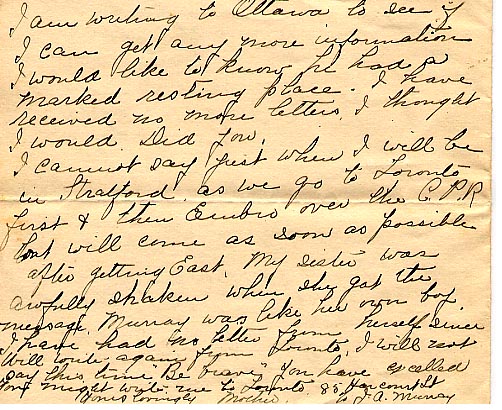 I am writing to Ottawa to see if
I can get any more information
I would like to know he had a
marked resting place. I have
received no more letters. I thought
I would. Did you.
I cannot say just when I will be
in Stratford. as we go to Toronto
first & then Embro over the C.P.R
but will come as soon as possible
after getting East. My sister was
awfully shaken when she got the
message. Murray was like her own boy.
I have had no letter from herself since
Will write again from Toronto, I will not
say this time "Be brave" You have excelled
You might write me to Toronto. 85 Harcourt St
Yours lovingly Mother. J. A. Murray